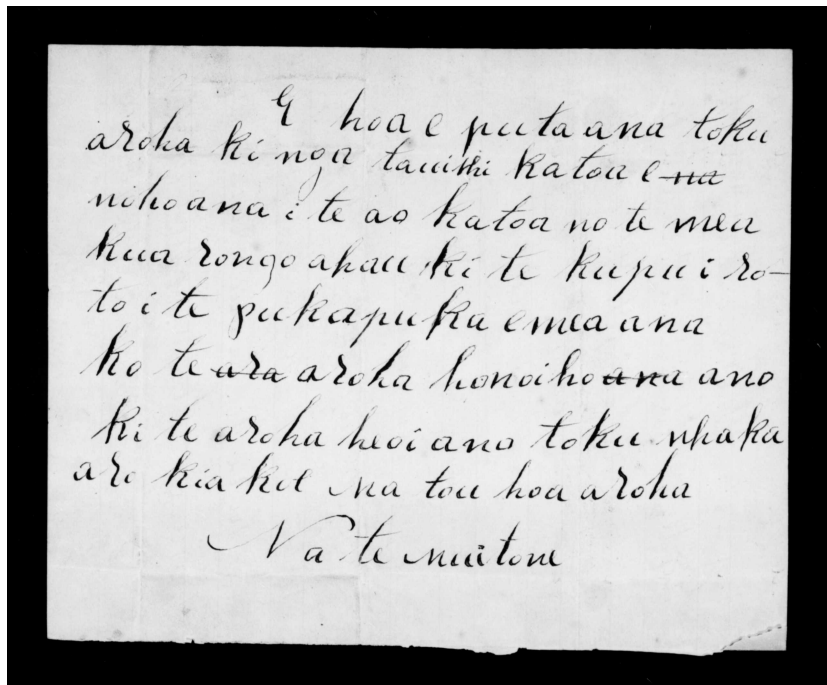 E hoa e puta ana toku
aroha ki nga katoa e na
noho ana i te ao katoa no te mea
kua rongo ahau ki te kupu i ro-
to i te pukapuka e mea ana
ko te ara aroha hono iho ana ano
ki te aroha heoi ano toku whaka
aro kia koe Na tou hoa aroha
Na te